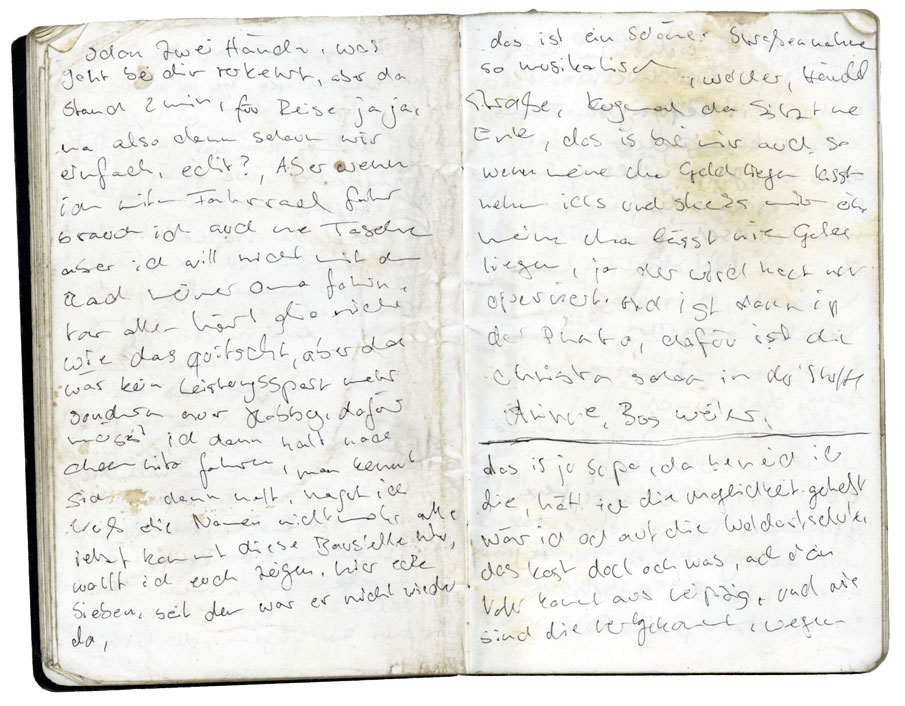 schon zwei Händer, was
geht bei dir verkehrt, aber da
stand 2 min, für Reise ja ja,
na also dann schaun wir
einfach, echt?, Aber wenn
ich mitm Fahrrad fahr
brauch ich auch ne Tasche
aber ich will nicht mit dm
Rad meiner Oma fahrn,
vor allem hört die nicht
wie das quitscht, aber das
wär kein Leistungssport mehr
sondern nur Hobby, dafür
müsst ich dann halt nach
fahren, man kennt
sich dann halt,
weiß die Namen nicht mehr alle
jetzt kommt diese Baustelle hier,
wollt ich euch zeigen, hier ecke
sieben, seit dem war er nicht wieder
da,
das ist ein schöner Straßenname
so musikalisch, welcher, Händel
Straße, da sitzt ne
Ente, das is bei mir auch so
wenn meine Oma Geld liegen lässt
nehm ichs und
meine Oma lässt nie Geld
liegen, ja der wird halt nur
operiert und ist dann in
der Pharao, dafür ist die
Christa schon in der Stadt
Bus weiter,
das is ja super, da beneid ich
die, hätt ich die möglichkeit gehabt
wär ich och auf die Waldorfschule,
das kost doch och was, ach dein
Vater kommt aus Leipzig, und wie
sind die hergekommen, wegen